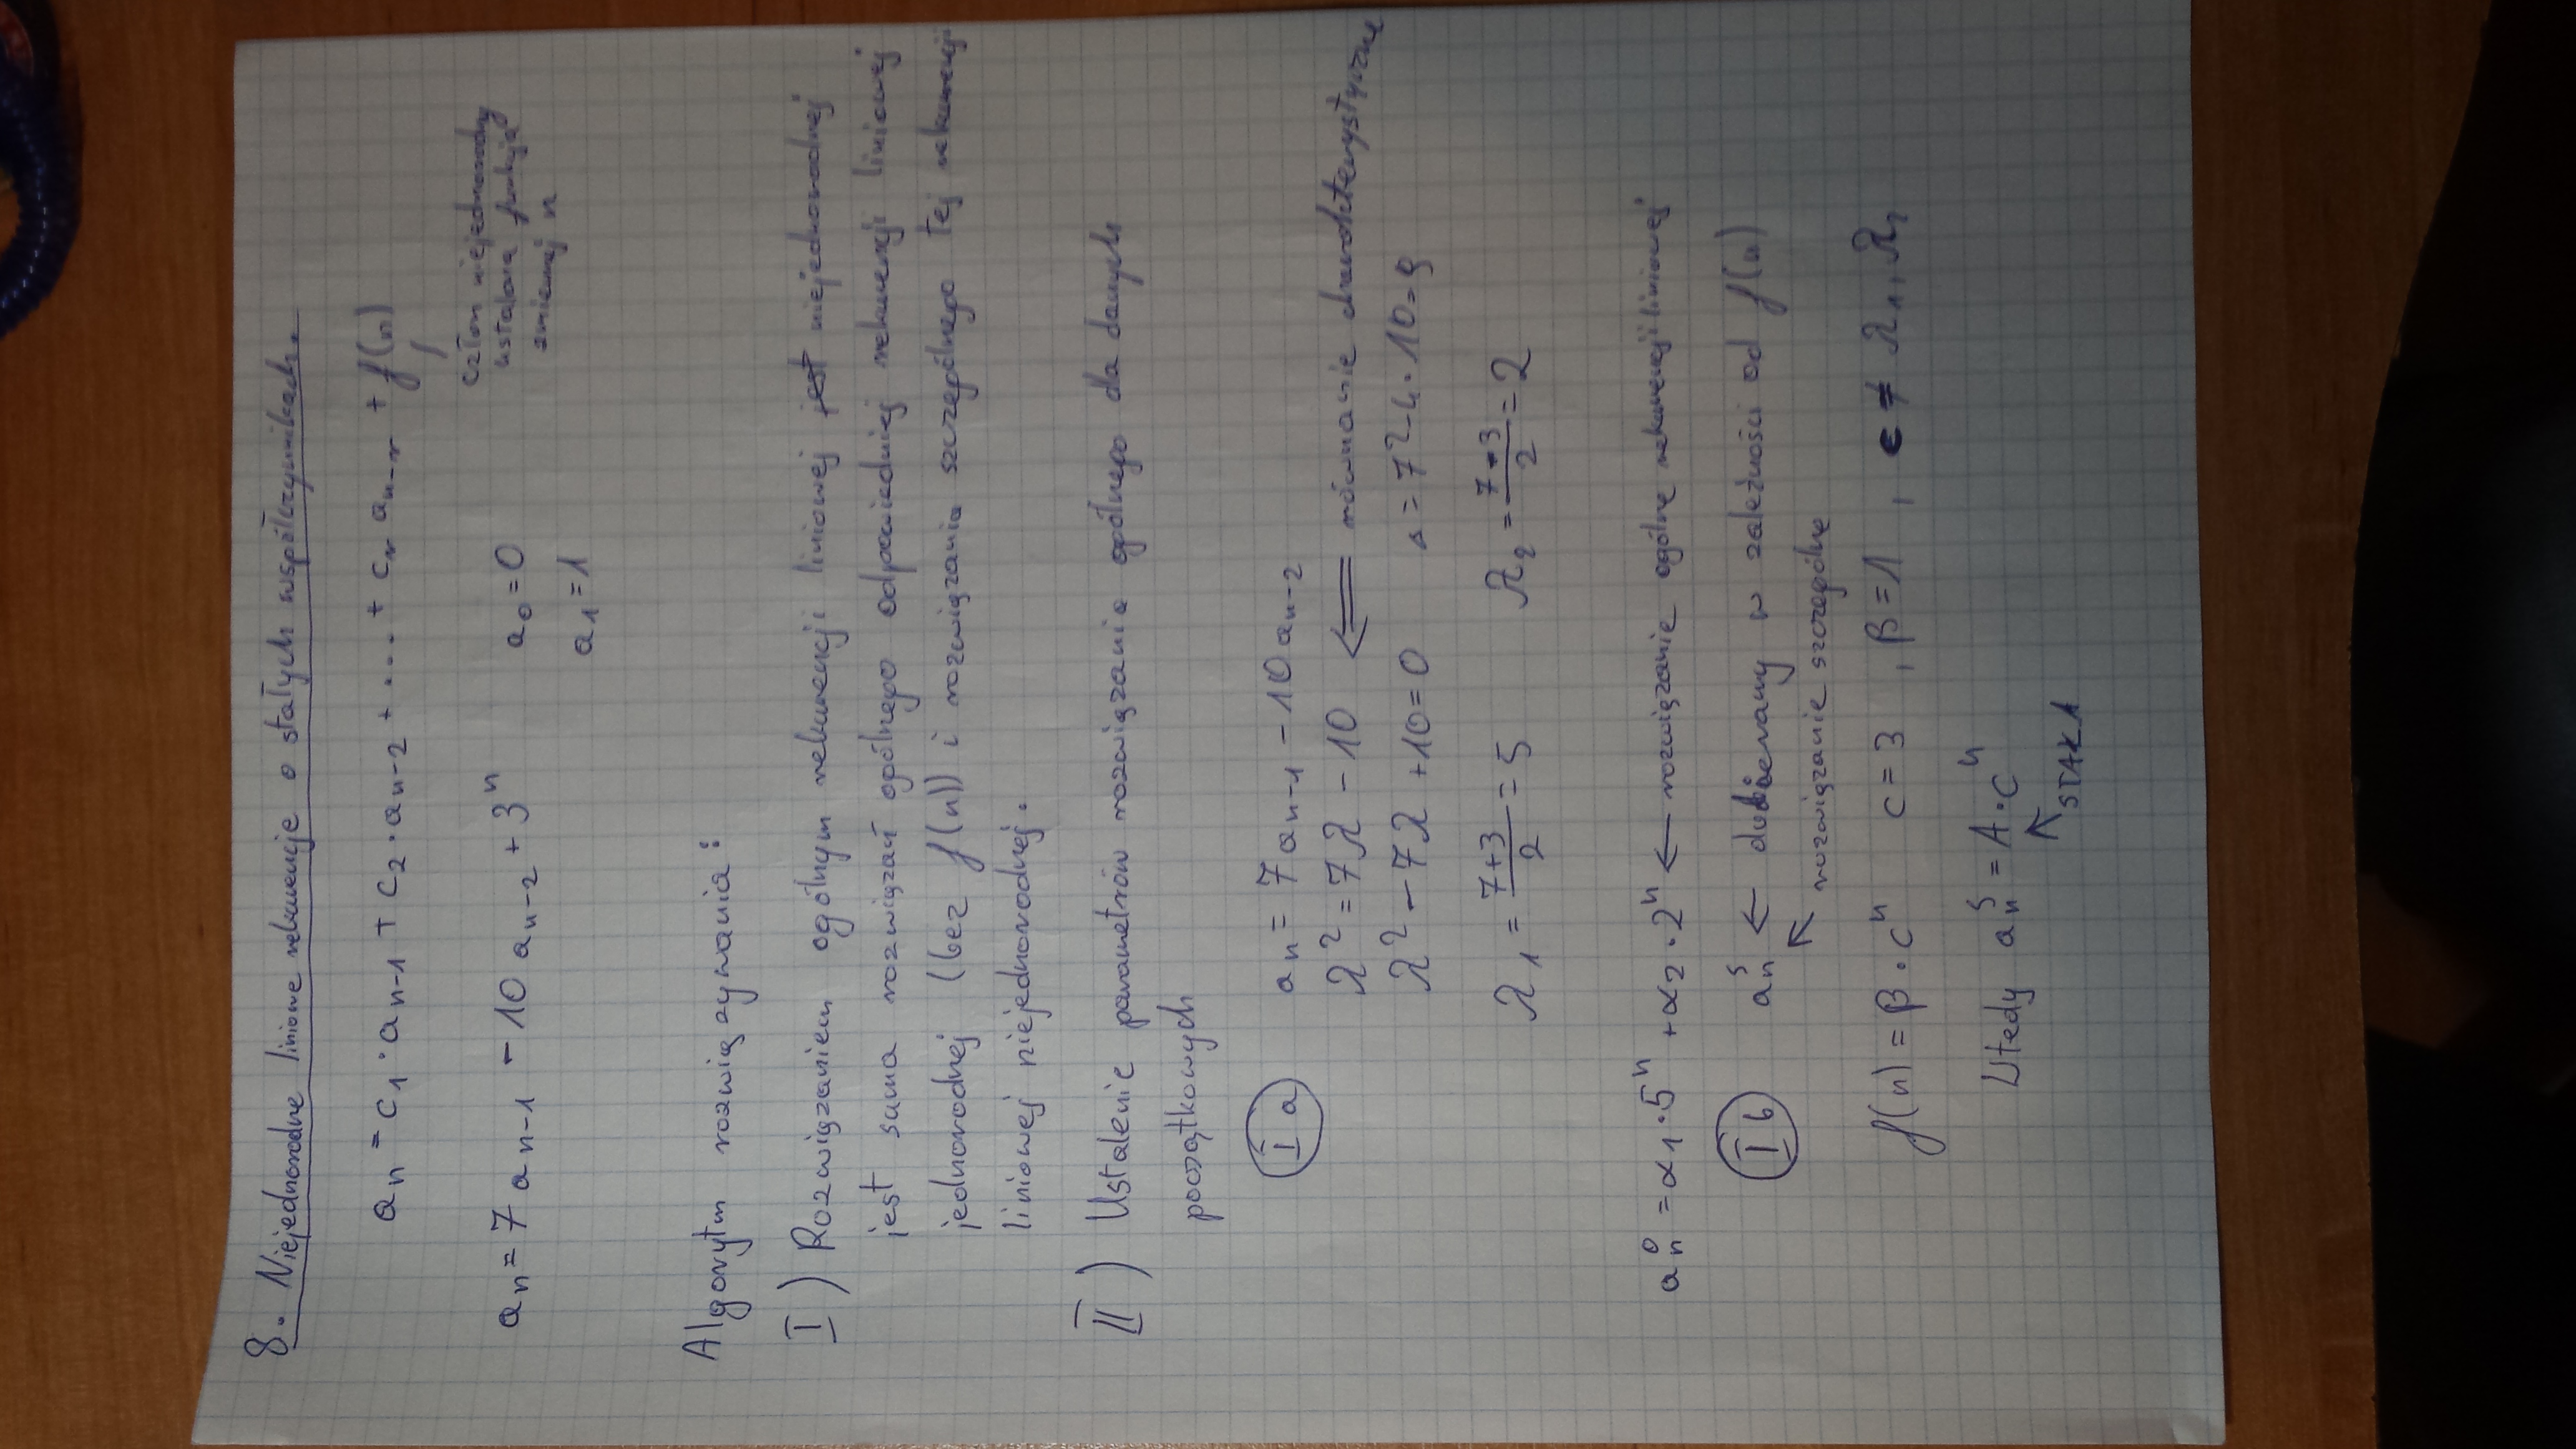 8. Niejednorodne liniowe rekurencje o stałych współczynnikach.
aₙ = c₁·aₙ₋₁ + c₂·aₙ₋₂ + ... + cᵣ aₙ₋ᵣ + f(n)
człon niejednorodny
ustalona funkcja
zmiennej n
aₙ = 7aₙ₋₁ - 10aₙ₋₂ + 3ⁿ a₀ = 0
a₁ = 1
Algorytm rozwiązywania:
I) Rozwiązaniem ogólnym rekurencji liniowej jest niejednorodnej
jest suma rozwiązań ogólnego odpowiedniej rekurencji liniowej
jednorodnej (bez f(n)) i rozwiązania szczególnego tej rekurencji
liniowej niejednorodnej.
II) Ustalenie parametrów rozwiązania ogólnego dla danych
początkowych
I a aₙ = 7aₙ₋₁ - 10aₙ₋₂
λ² = 7λ - 10 ⇐ równanie charakterystyczne
λ² - 7λ + 10 = 0 Δ = 7² - 4·10 = 9
λ₁ = (7+3)/2 = 5 λ₂ = (7-3)/2 = 2
aₙ⁰ = α₁·5ⁿ + α₂·2ⁿ ← rozwiązanie ogólne rekurencji liniowej
I b aₙˢ ← dobieramy w zależności od f(n)
↖ rozwiązanie szczególne
f(n) = β·cⁿ c = 3 , β = 1 , c ≠ λ₁, λ₂
Wtedy aₙˢ = A·cⁿ
↖ STAŁA